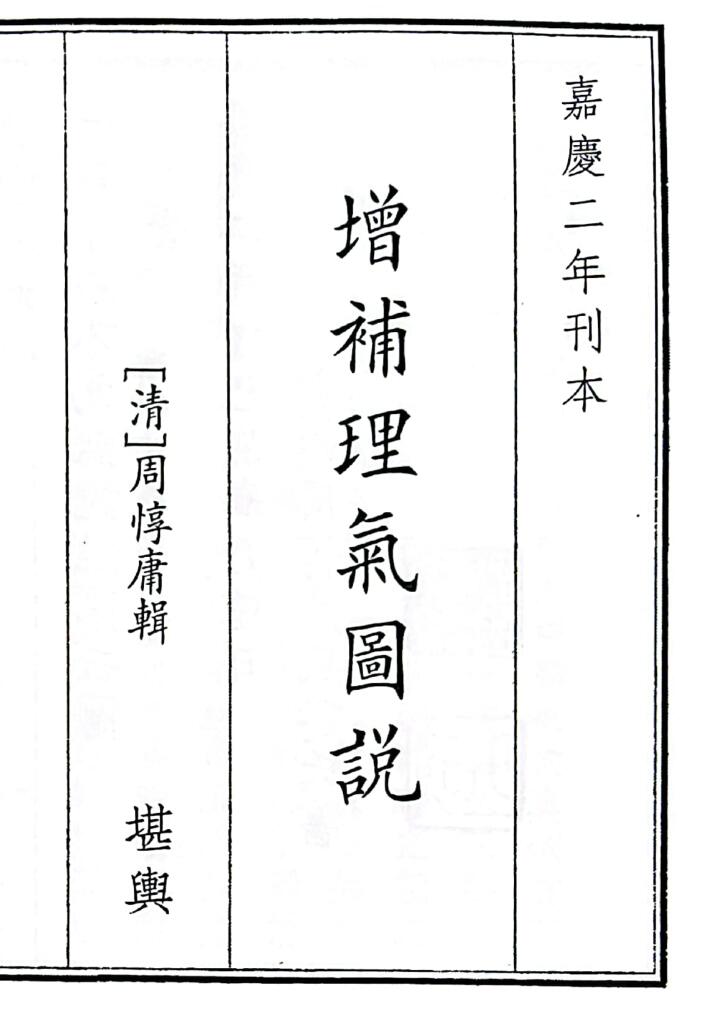 嘉慶二年刊本
增補理氣圖説
[清]周惇庸輯
堪輿